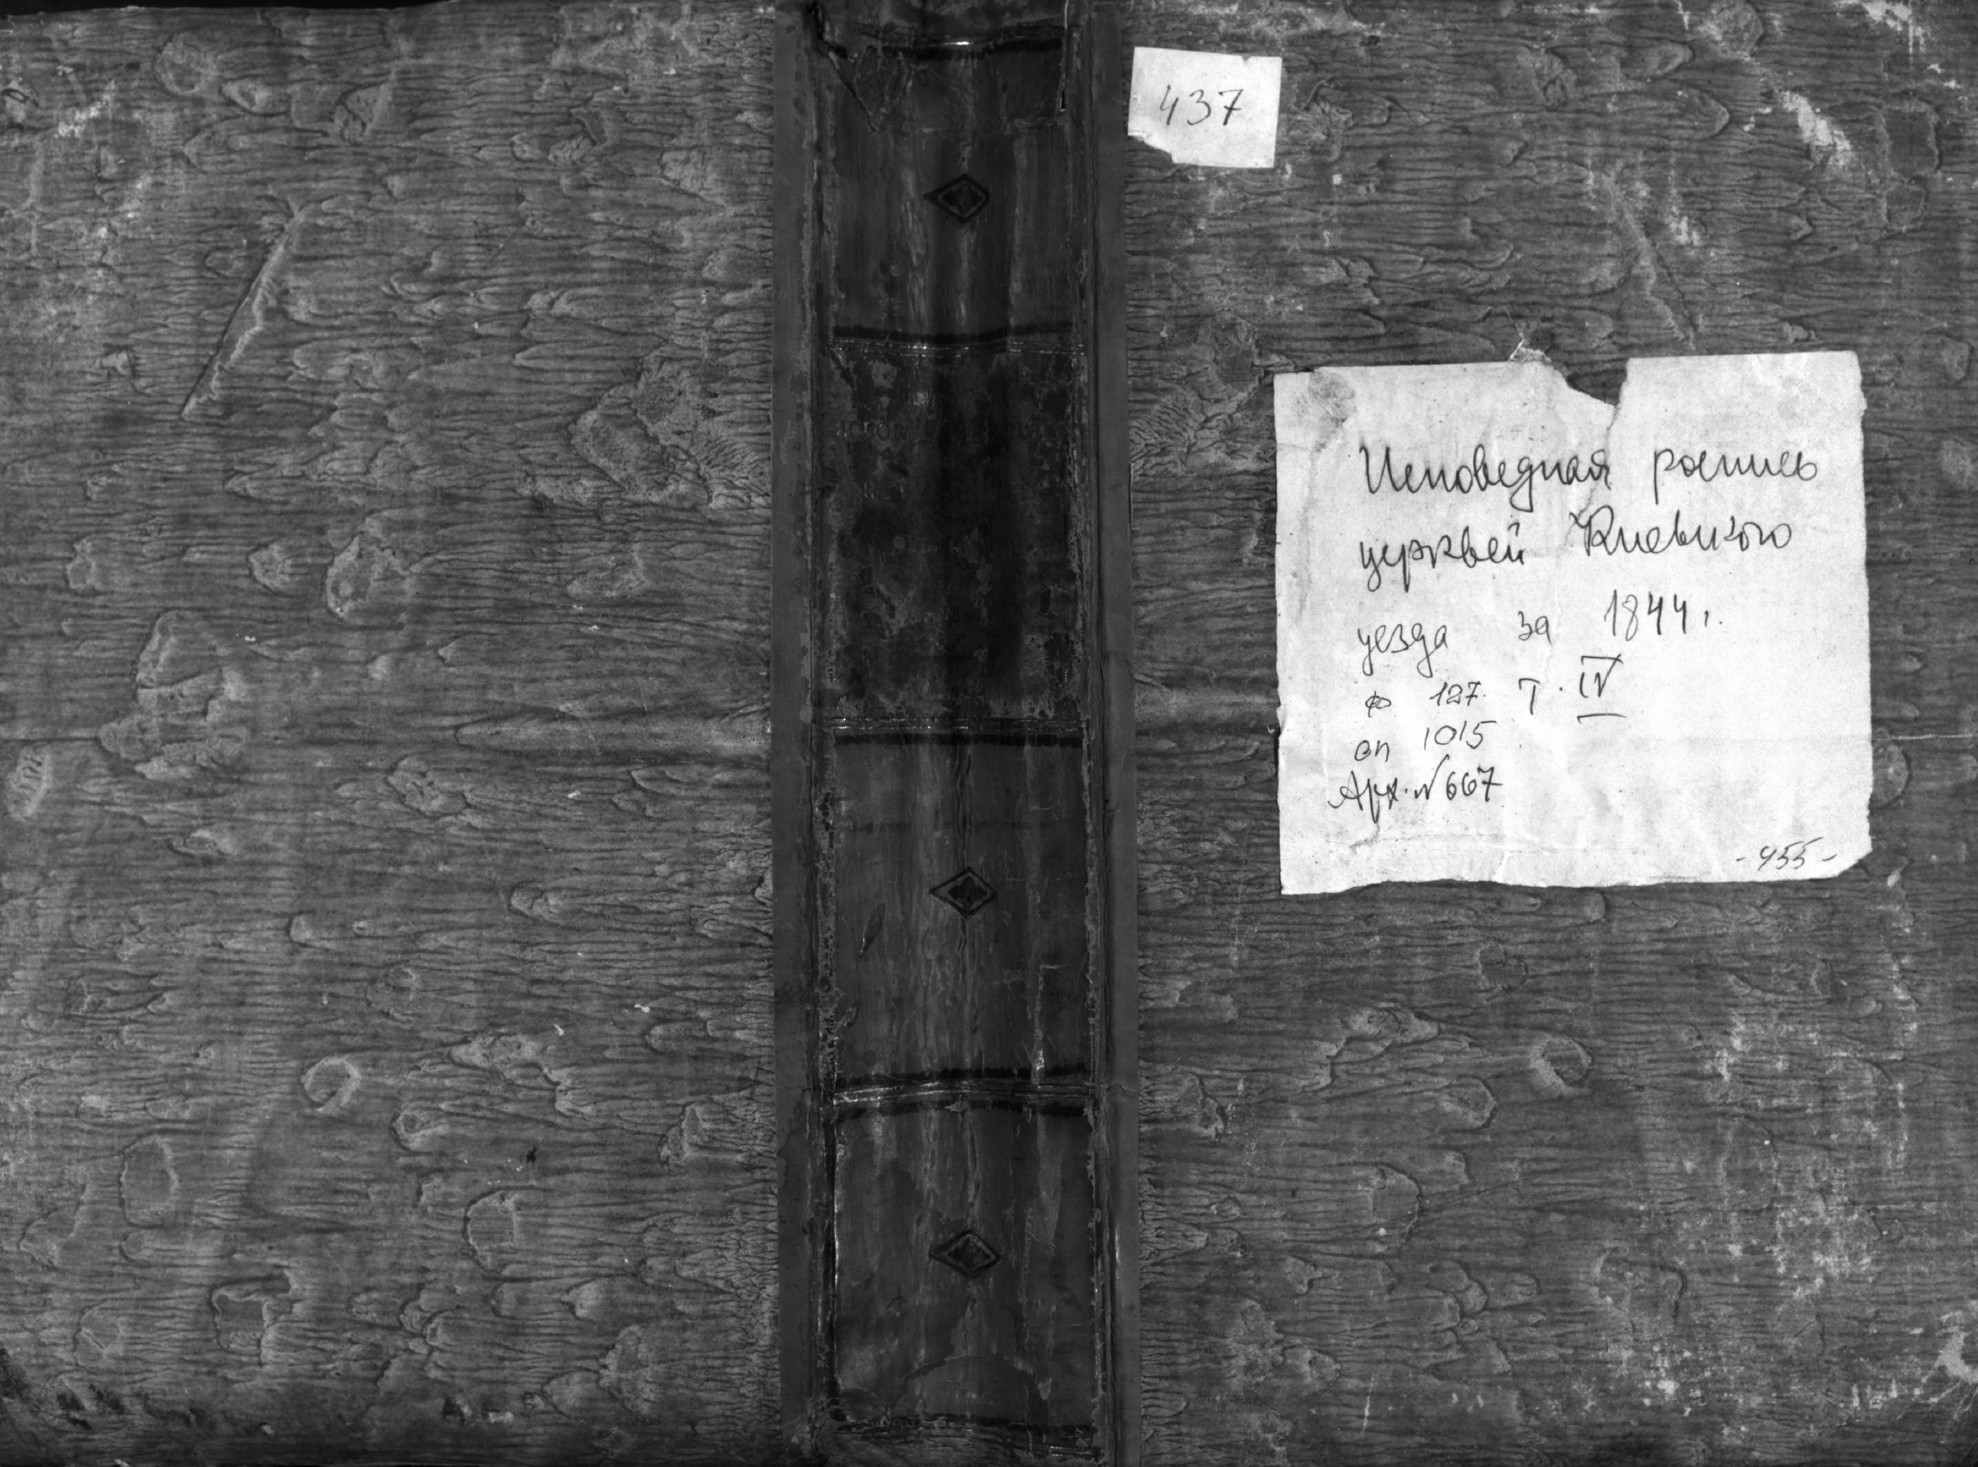 437
Исповедная роспись
церквей Киевского
уезда за 1844 г.
ф 127. Т. IV
оп 1015
Арх. № 667
- 455 -